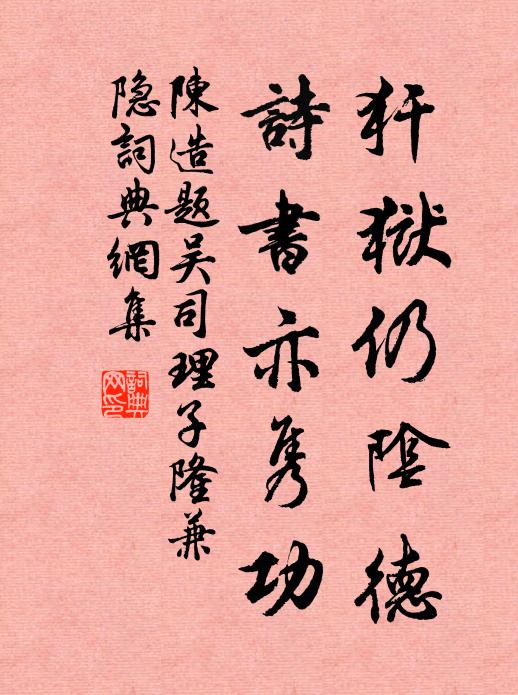 犴獄仍陰德
詩書亦雋功
陳造題吴司理子隆兼
隐詞典網集
詞典網印